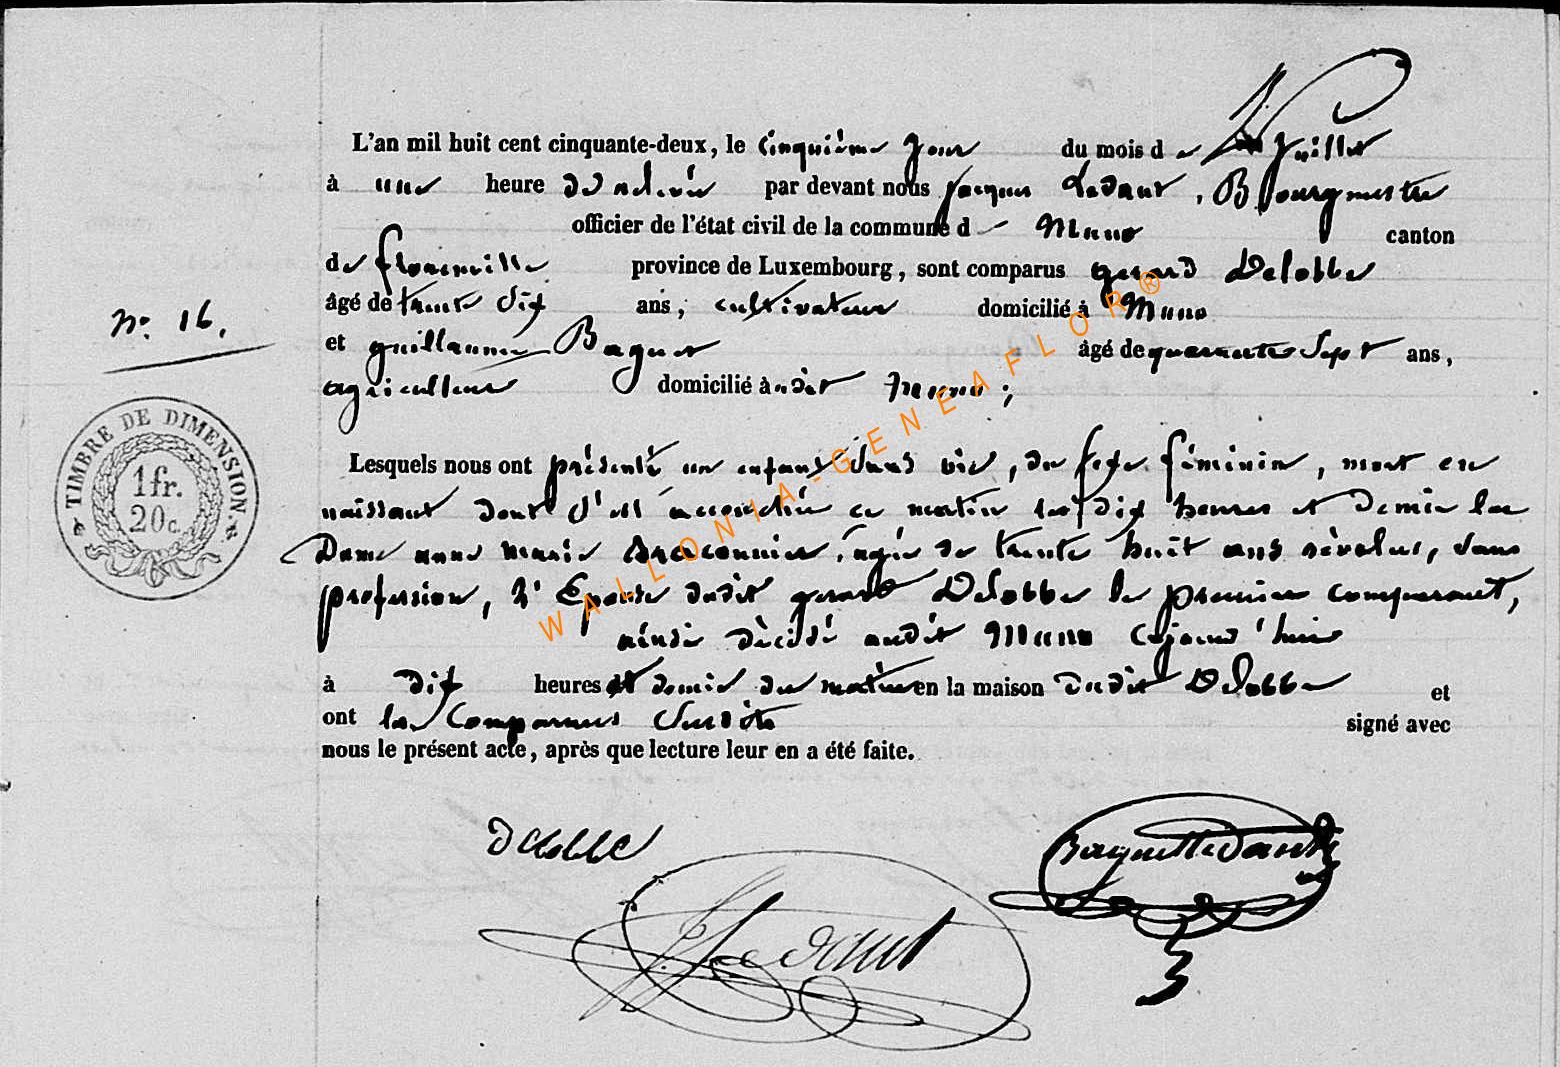 L'an mil huit cent cinquante-deux, le cinquième jour du mois de Juillet
à une heure de relevée par devant nous Jacques Ledant, Bourgmestre
officier de l'état civil de la commune d Muno canton
de florenville province de Luxembourg, sont comparus gerard Delobbe
âgé de trente dix ans, cultivateur domicilié à Muno
et guillaume Baguet âgé de quarante Sept ans,
agriculteur domicilié à udit Muno ;
N°. 16.
TIMBRE DE DIMENSION
1fr.
20c.
Lesquels nous ont présenté un enfant Sans vie, du sexe féminin, mort en
naissant dont s'est accouchée ce matin les dix heures et demie la
Dame anne marie Braconnier, agée de trente huit ans révolus, Sans
profession, l'Epouse dudit gerard Delobbe le premier comparant,
ainsi décédé audit Muno cejourd'hui
à dix heures et demie du matin en la maison dudit Delobbe et
ont les Comparus Susdits signé avec
nous le présent acte, après que lecture leur en a été faite.
Delobbe
Ledant
WALLONIA-GENEAFLOR®